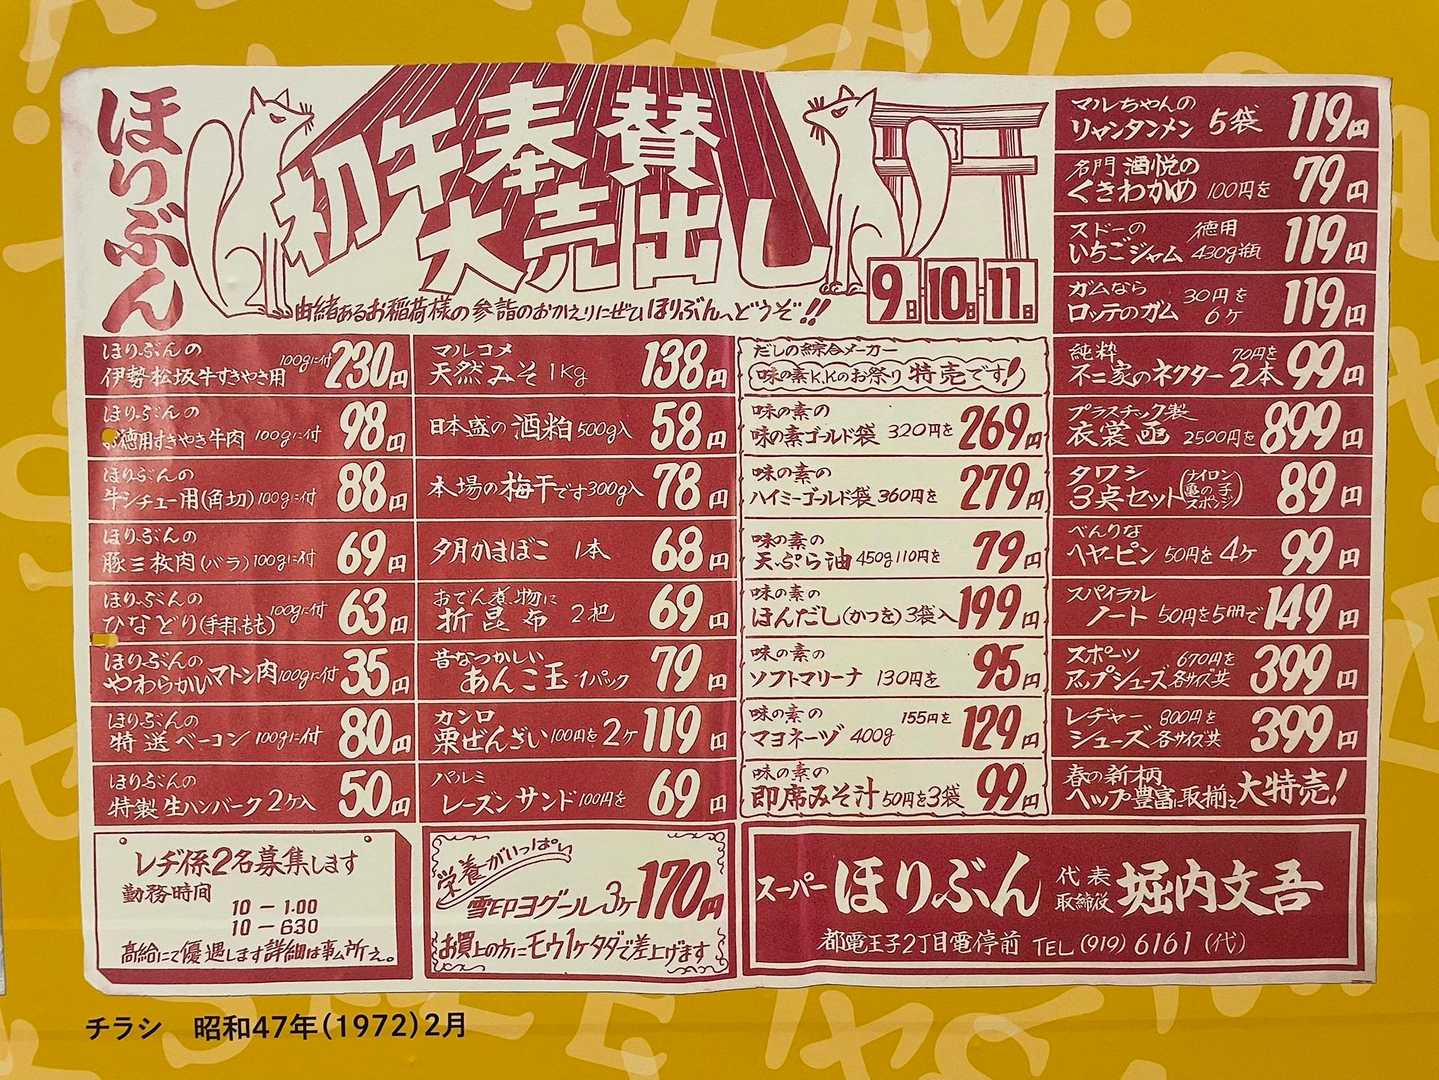 ほりぶん
初午奉賛
大売出し
9日・10日・11日
由緒あるお稲荷様の参詣のおかえりにぜひほりぶんへどうぞ!!
ほりぶんの
伊勢松坂牛すきやき用 100gに付 230円
ほりぶんの
お徳用すきやき牛肉 100gに付 98円
ほりぶんの
牛シチュー用(角切) 100gに付 88円
ほりぶんの
豚三枚肉(バラ) 100gに付 69円
ほりぶんの
ひなどり(手羽、もも) 100gに付 63円
ほりぶんの
やわらかいマトン肉 100gに付 35円
ほりぶんの
特送ベーコン 100gに付 80円
ほりぶんの
特製生ハンバーク2ケ入 50円
マルコメ
天然みそ1kg 138円
日本盛の酒粕500g入 58円
本場の梅干です300g入 78円
夕月かまぼこ 1本 68円
おでん煮物に
折昆布 2把 69円
昔なつかしい
あんこ玉 1パック 79円
カンロ
栗ぜんざい 100円を2ケ 119円
パルミ
レーズンサンド 100円を 69円
だしの綜合メーカー
味の素K.Kのお祭り特売です!
味の素の
味の素ゴールド袋 320円を 269円
味の素の
ハイミーゴールド袋 360円を 279円
味の素の
天ぷら油 450g110円を 79円
味の素の
ほんだし(かつを)3袋入 199円
味の素の
ソフトマリーナ 130円を 95円
味の素の 155円を
マヨネーヅ 400g 129円
味の素の
即席みそ汁 50円を3袋 99円
マルちゃんの
リャンタンメン 5袋 119円
名門 酒悦の
くきわかめ 100円を 79円
スドーの 徳用
いちごジャム 430g瓶 119円
ガムなら 30円を
ロッテのガム 6ケ 119円
純粋 70円を
不二家のネクター2本 99円
プラスチック製
衣裳函 2500円を 899円
タワシ
3点セット(ナイロン
亀の子
スポンジ) 89円
べんりな
ヘヤーピン 50円を4ケ 99円
スパイラル
ノート 50円を5冊で 149円
スポーツ 670円を
アップシューズ 各サイズ共 399円
レヂャー 800円を
シューズ 各サイズ共 399円
春の新柄
ヘップ豊富に取揃え大特売!
レヂ係2名募集します
勤務時間
10-1.00
10-6.30
高給にて優遇します詳細は事ム所え。
栄養がいっぱい
雪印ヨグール3ケ 170円
お買上の方にモウ1ケタダで差上げます
スーパーほりぶん 代表取締役 堀内文吾
都電王子2丁目電停前 TEL (919) 6161 (代)
チラシ 昭和47年(1972)2月